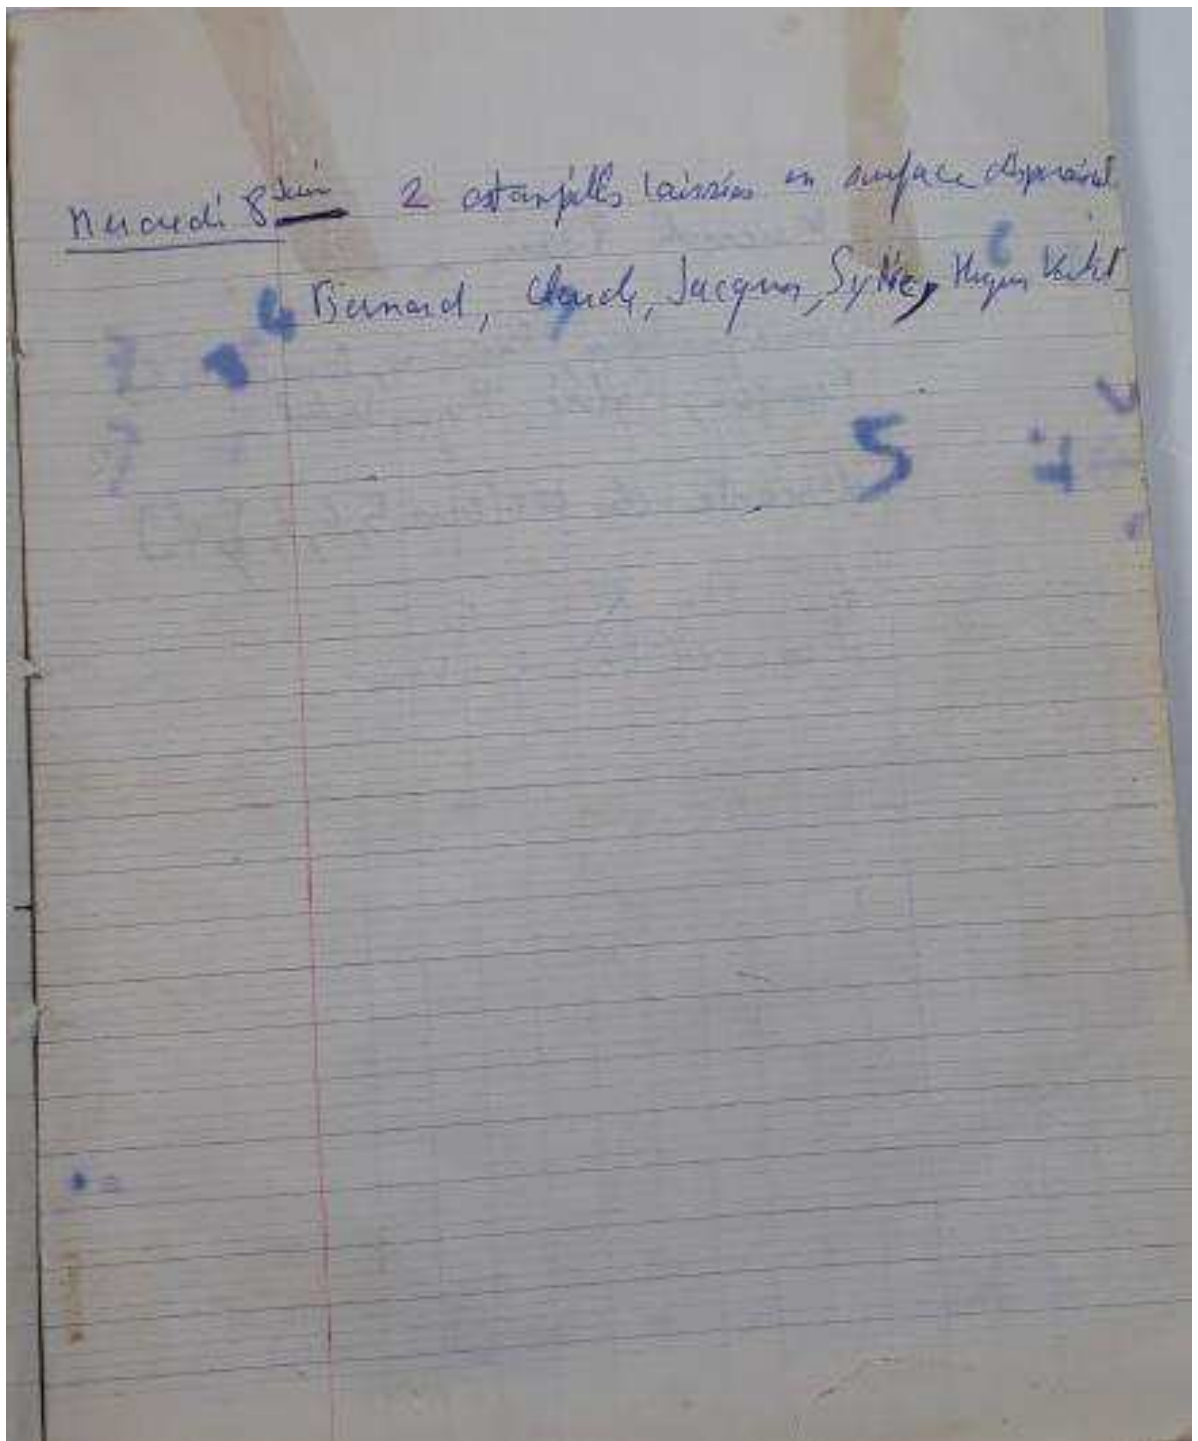 Mercredi 8 Juin 2 estampilles laissées en surface disparaissent
Bernard, Claude, Jacques, Sylvie, Hugues
5